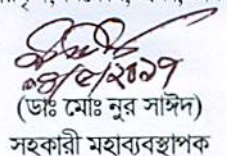 ০৪/৫/২০১৭
(ডাঃ মোঃ নুর সাঈদ)
সহকারী মহাব্যবস্থাপক